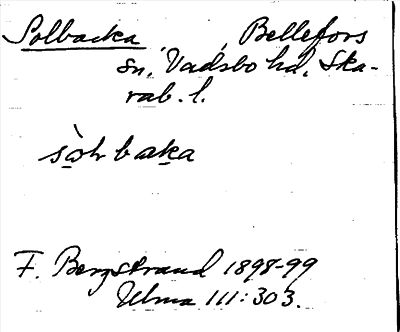 Solbacka, , Bellefors
sn, Vadsbo hd, Ska-
rab. l.
sòlr backa
F. Bergstrand 1898-99
Ulma 111:303.